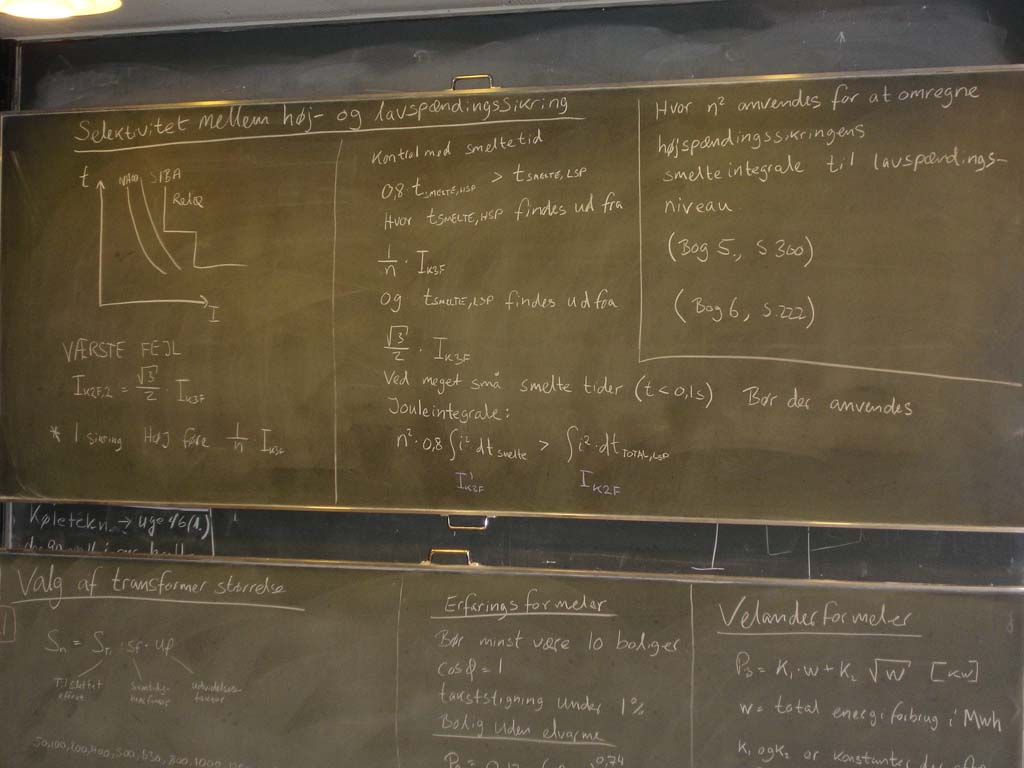 Selektivitet mellem høj- og lavspændingssikring
t
SIBA
Relæ
I
VÆRSTE FEJL
I_K2F,2 = √3/2 · I_K3F
* 1 sikring HØJ føre 1/n I_K3F
Kontrol med smeltetid
0,8 t_SMELTE,HSP > t_SMELTE,LSP
Hvor t_SMELTE,HSP findes ud fra
1/n · I_K3F
og t_SMELTE,LSP findes ud fra
√3/2 · I_K3F
Ved meget små smelte tider (t < 0,1s) Bør der anvendes
Jouleintegrale:
n² · 0,8 ∫i² dt smelte > ∫i² · dt TOTAL,LSP
I'_K3F I_K2F
Hvor n² anvendes for at omregne
højspændingssikringens
smelteintegrale til lavspændings-
niveau
(Bog 5, S 360)
(Bog 6, S. 222)
Køletekn. → uge 46 (1.)
Valg af transformer størrelse
Sn = ST · sf · uf
Tilsluttet
effekt
Samtidigheds
Udvidelses-
faktor
50, 100, 200, 400, 500, 630, 800, 1000
Erfaringsformler
Bør minst være 10 boliger
cos φ = 1
takststigning under 1%
Bolig uden elvarme
0,74
Velanderformler
P_B = K₁ · w + K₂ √w [kW]
w = total energiforbrug i MWh
K₁ og K₂ er konstanter der